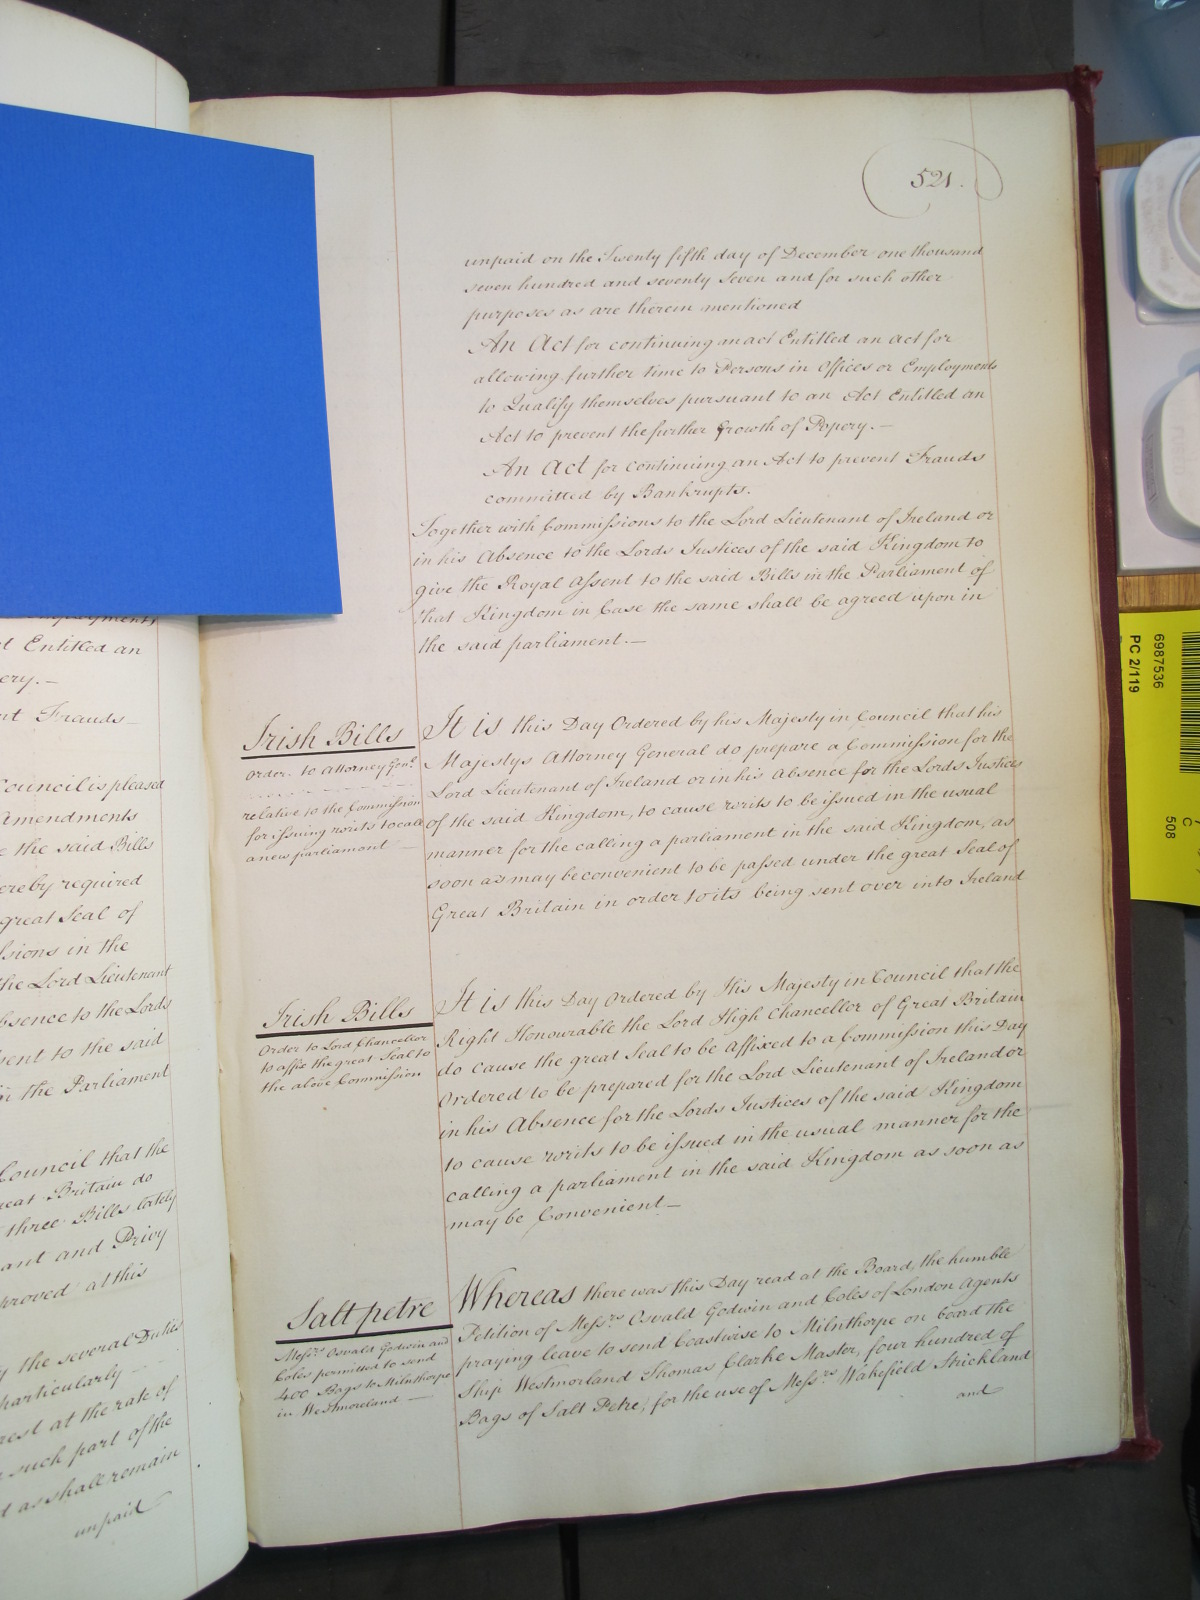 521.
unpaid on the Twenty fifth day of December one thousand
seven hundred and seventy seven and for such other
purposes as are therein mentioned
An Act for continuing an act Entitled an act for
allowing further time to Persons in Offices or Employments
to Qualify themselves pursuant to an Act Entitled an
Act to prevent the further Growth of Popery.—
An Act for continuing an Act to prevent Frauds
committed by Bankrupts.
Together with Commissions to the Lord Lieutenant of Ireland or
in his Absence to the Lords Justices of the said Kingdom to
give the Royal Assent to the said Bills in the Parliament of
that Kingdom in Case the same shall be agreed upon in
the said parliament.—
Irish Bills
Order. to Attorney Genl.
relative to the Commission
for issuing writs to call
a new parliament —
It is this Day Ordered by his Majesty in Council that his
Majestys Attorney General do prepare a Commission for the
Lord Lieutenant of Ireland or in his Absence for the Lords Justices
of the said Kingdom, to cause writs to be issued in the usual
manner for the calling a parliament in the said Kingdom, as
soon as may be convenient to be passed under the great Seal of
Great Britain in order to its being sent over into Ireland
Irish Bills
Order to Lord Chancellor
to affix the great Seal to
the above Commission
It is this Day Ordered by His Majesty in Council that the
Right Honourable the Lord High Chancellor of Great Britain
do cause the great Seal to be Affixed to a Commission this Day
Ordered to be prepared for the Lord Lieutenant of Ireland or
in his Absence for the Lords Justices of the said Kingdom
to cause writs to be issued in the usual manner for the
calling a parliament in the said Kingdom as soon as
may be Convenient—
Salt petre
Messrs. Oswald Godwin and
Coles permitted to send
400 Bags to Milnthorpe
in Westmoreland —
Whereas there was this Day read at the Board, the humble
Petition of Messrs. Oswald Godwin and Coles of London Agents
praying leave to send Coastwise to Milnthorpe on board the
Ship Westmorland Thomas Clarke Master, four hundred of
Bags of Salt Petre, for the use of Messrs. Wakefield Strickland
and
t Entitled an
ery.—
nt Frauds—
Council is pleased
Amendments
e the said Bills
ereby required
great Seal of
ssions in the
the Lord Lieutenant
bsence to the Lords
sent to the said
in the Parliament
Council that the
reat Britain do
three Bills lately
ant and Privy
proved at this
y the several Duties
particularly
rest at the rate of
such part of the
d as shall remain
unpaid
6987536
PC 2/119
C
508